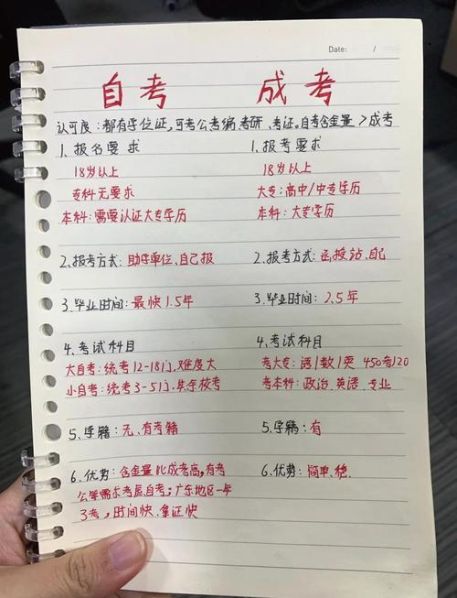 Date: /
自考 成考
认可度：都有学位证，可考公考编，考研、考证，自考含金量＞成考
1、报名要求 1、报考要求
18岁以上 18岁以上
专科无要求 大专：高中/中专学历
本科：需要认证大专学历 本科：大专学历
2、报考方式：助学单位、自己报 2、报考方式：函授站、自己
3、毕业时间：最快1.5年 3、毕业时间：2.5年
4、考试科目 4、考试科目
大自考：统考12-18门，难度大 考大专：语/数/英 450分/120
小自考：统考3-5门，其余校考 考本科：政治、英语、专业
5、学籍：无、有考籍 5、学籍：有
6、优势：含金量比成考高，有考 6、优势：简单、稳、
公等需求考虑自考；广东地区一年
3考，时间快、拿证快